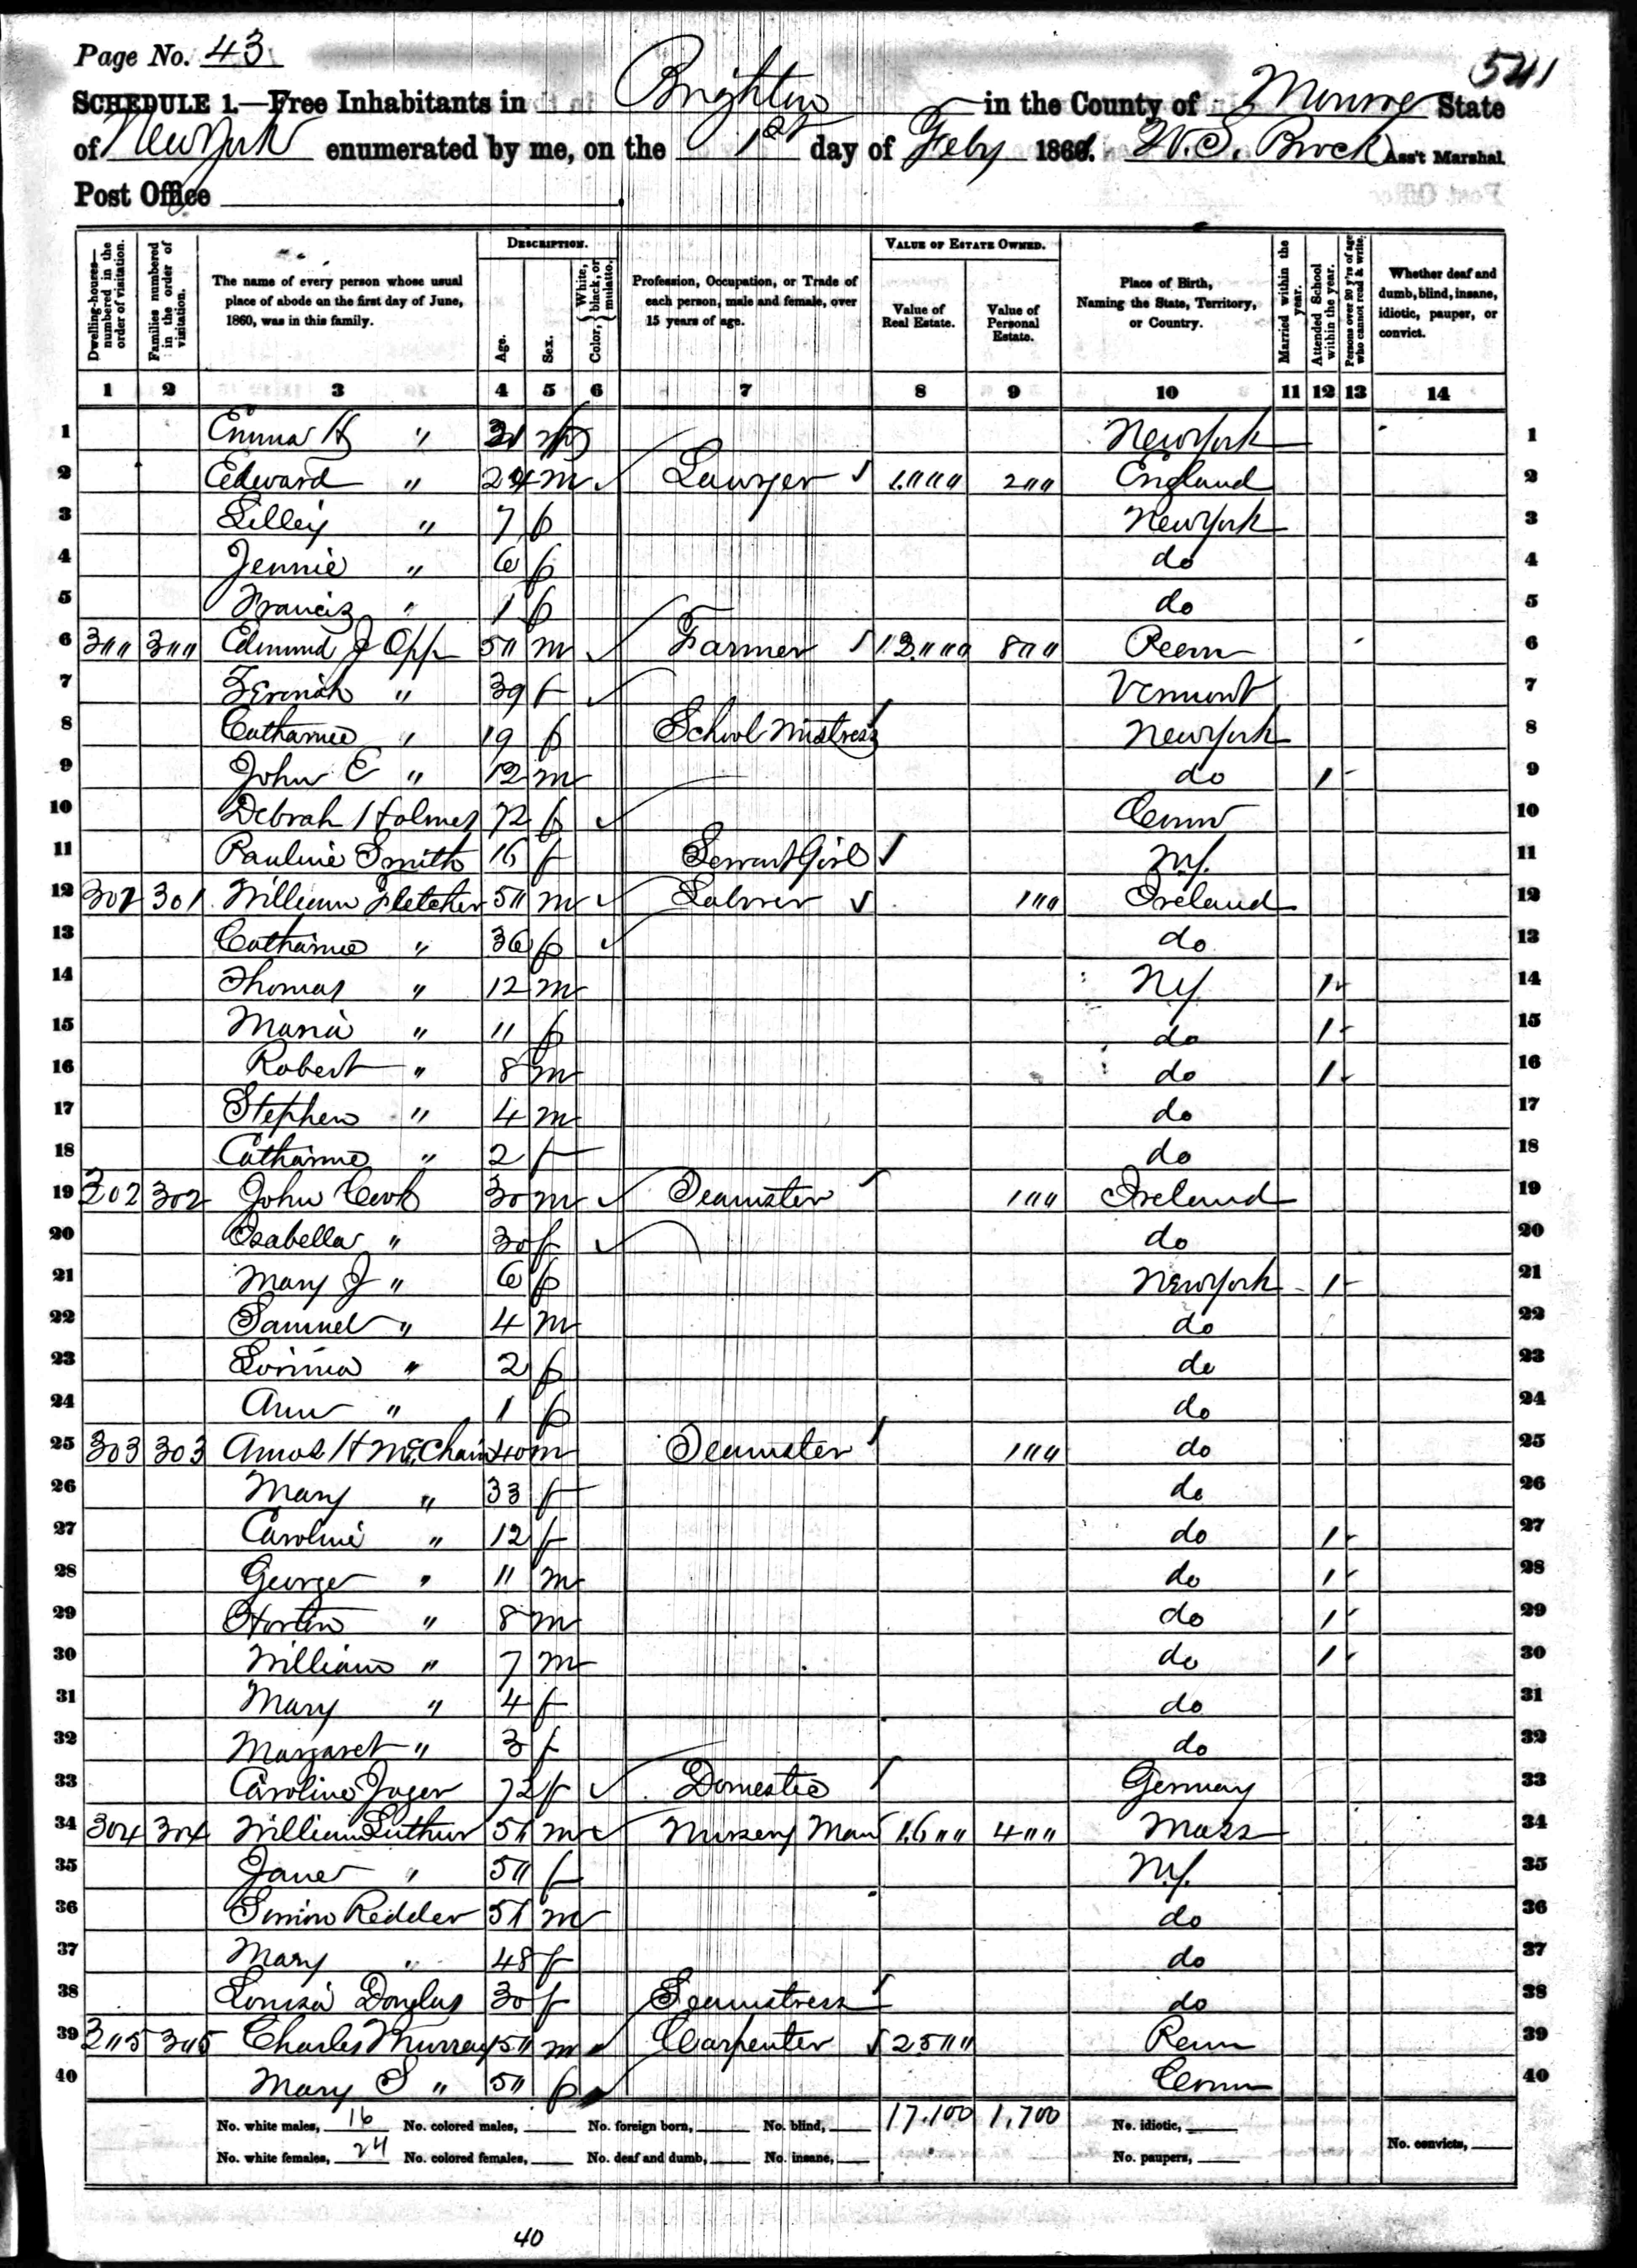 Page No. 43
541
SCHEDULE 1.—Free Inhabitants in Brighton in the County of Monroe State
of New York enumerated by me, on the 1st day of Feby 1860. W. S. Brock Ass't Marshal.
Post Office
Dwelling-houses—numbered in the order of visitation.
Families numbered in the order of visitation.
The name of every person whose usual place of abode on the first day of June, 1860, was in this family.
DESCRIPTION.
Age.
Sex.
Color, White, black, or mulatto.
Profession, Occupation, or Trade of each person, male and female, over 15 years of age.
VALUE OF ESTATE OWNED.
Value of Real Estate.
Value of Personal Estate.
Place of Birth, Naming the State, Territory, or Country.
Married within the year.
Attended School within the year.
Persons over 20 y'rs of age who cannot read & write.
Whether deaf and dumb, blind, insane, idiotic, pauper, or convict.
1 2 3 4 5 6 7 8 9 10 11 12 13 14
1 Emma H " New York 1
2 Edward " 24 m Lawyer 1."""" 2"" England 2
3 Lilley " 7 f New York 3
4 Jennie " 6 f do 4
5 Francis " 1 f do 5
6 3"" 3"" Edmund J Opp 5" m Farmer 8"" 6
7 " 39 f Vermont 7
8 Catharine " 19 f School Mistress New York 8
9 John E " 12 m do 1 9
10 Debrah Holmes 72 f Conn 10
11 Pauline Smith 16 f Servant Girl N.Y. 11
12 301 301 William Fletcher 5" m Labrer 1"" Ireland 12
13 Catharine " 36 f do 13
14 Thomas " 12 m N.Y. 1 14
15 Maria " 11 f do 1 15
16 Robert " 8 m do 1 16
17 Stephen " 4 m do 17
18 Catharine " 2 f do 18
19 302 302 John Cook 30 m Teamster 1"" Ireland 19
20 Isabella " 30 f do 20
21 Mary J " 6 f New York 1 21
22 Samuel " 4 m do 22
23 " 2 f do 23
24 Ann " 1 f do 24
25 303 303 Amos H McChain 40 m Teamster 1"" do 25
26 Mary " 33 f do 26
27 Caroline " 12 f do 1 27
28 George " 11 m do 1 28
29 Horten " 8 m do 1 29
30 William " 7 m do 1 30
31 Mary " 4 f do 31
32 Margaret " 3 f do 32
33 Caroline Jager 72 f Domestic Germay 33
34 304 304 William Luther 51 m Nursery Man 1.6"" 4"" Mass 34
35 Jane " 5" f N.Y. 35
36 Simon Redder 51 m do 36
37 Mary " 48 f do 37
38 Louisa Douglas 30 f Seamstress do 38
39 3"5 3"5 Charles Murray 5" m Carpenter 25"" Penn 39
40 Mary S " 5" f Conn 40
No. white males, 16 No. colored males, No. foreign born, No. blind, 17.100 1,700 No. idiotic,
No. white females, 24 No. colored females, No. deaf and dumb, No. insane, No. paupers, No. convicts,
40